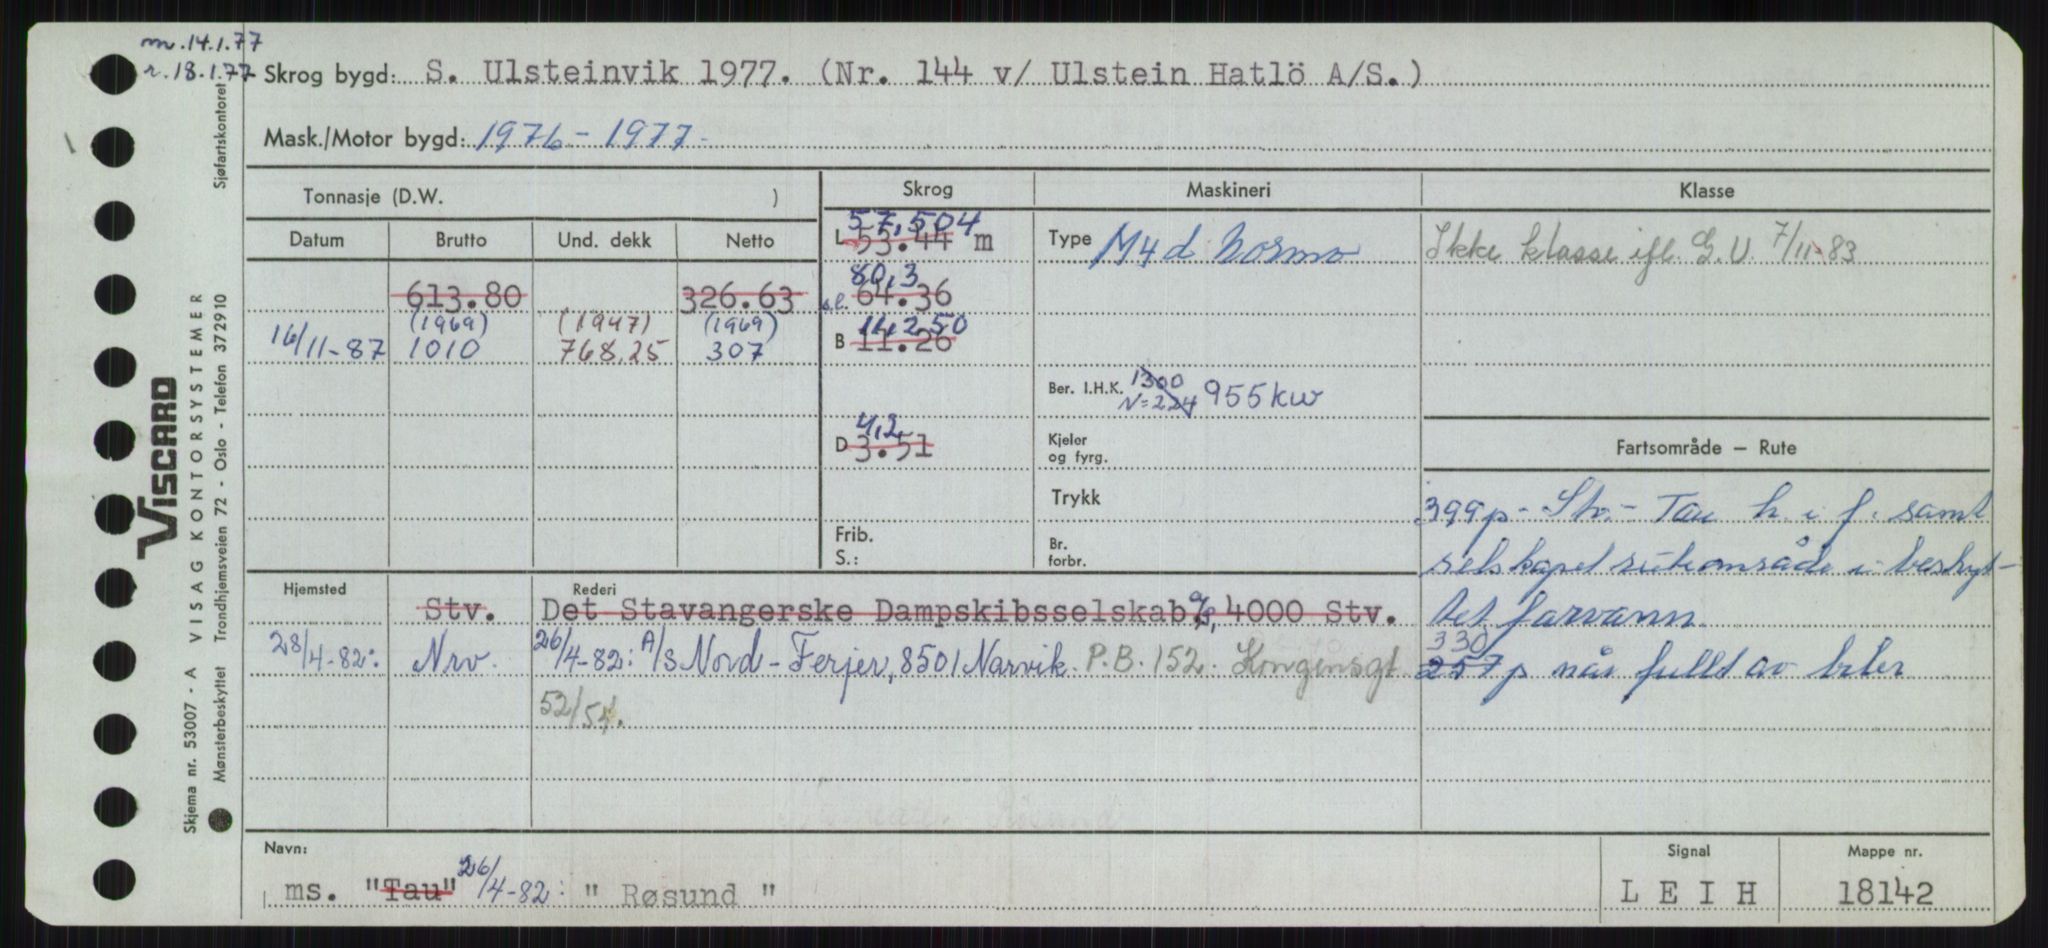 m.14.1.77
r.18.1.77 Skrog bygd: S. Ulsteinvik 1977. (Nr. 144 v/ Ulstein Hatlö A/S.)
Mask./Motor bygd: 1976 - 1977 -
Tonnasje (D.W. ) Skrog Maskineri Klasse
Datum Brutto Und. dekk Netto
L 57,504 53.44 m
Type M4d Normo
Ikke klasse ifl. G.V. 7/11-83
613.80 326.63
80,3
s.l. 64.36
(1969) (1947) (1969)
16/11-87 1010 768.25 307
11,250
B 11.26
Ber. I.H.K. 1300 N=224 955 kw
4,2
D 3.51
Kjeler og fyrg.
Fartsområde – Rute
Trykk
399p - Stv. - Tau h. i f. samt
Frib.
S.:
Br. forbr.
selskapet ruteområde i beskyt-
Hjemsted Rederi
Stv. Det Stavangerske Dampskibsselskab A/S, 4000 Stv.
tet farvann.
28/4-82: Nrv. 26/4-82: A/S Nord-Ferjer, 8501 Narvik. P.B. 152. Kongensgt
52/54.
330
257p når fullt av biler
Navn: Signal Mappe nr.
ms. "Tau" 26/4-82: " Røsund " L E I H 18142
Sjøfartskontoret
VISCARD
VISAG KONTORSYSTEMER
Skjema nr. 53007 - A
Mønsterbeskyttet Trondhjemsveien 72 - Oslo - Telefon 372910